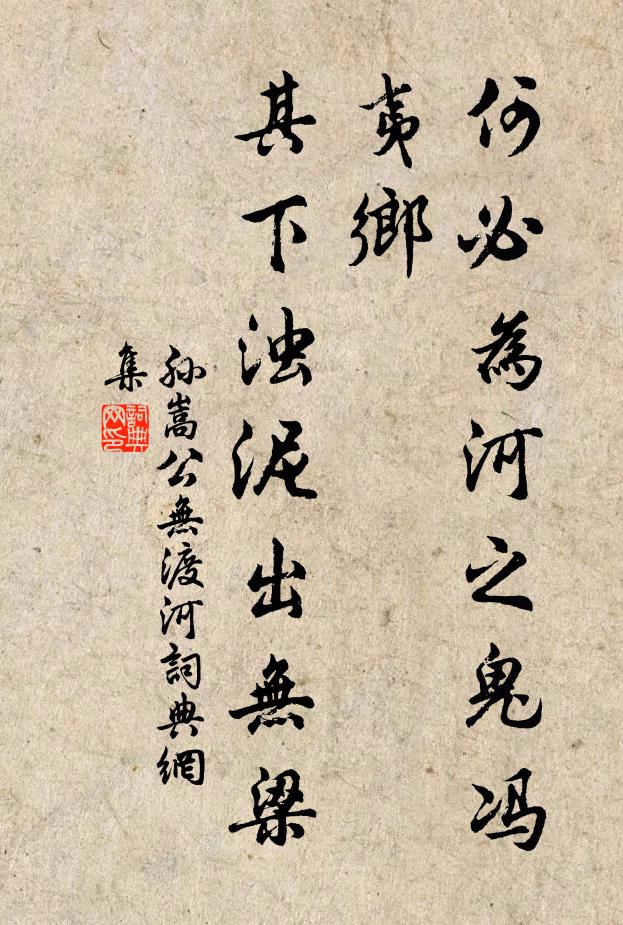 何必為河之鬼冯
夷鄉
其下浊泥出無梁
孙嵩公無渡河詞典網
集
詞典
网印